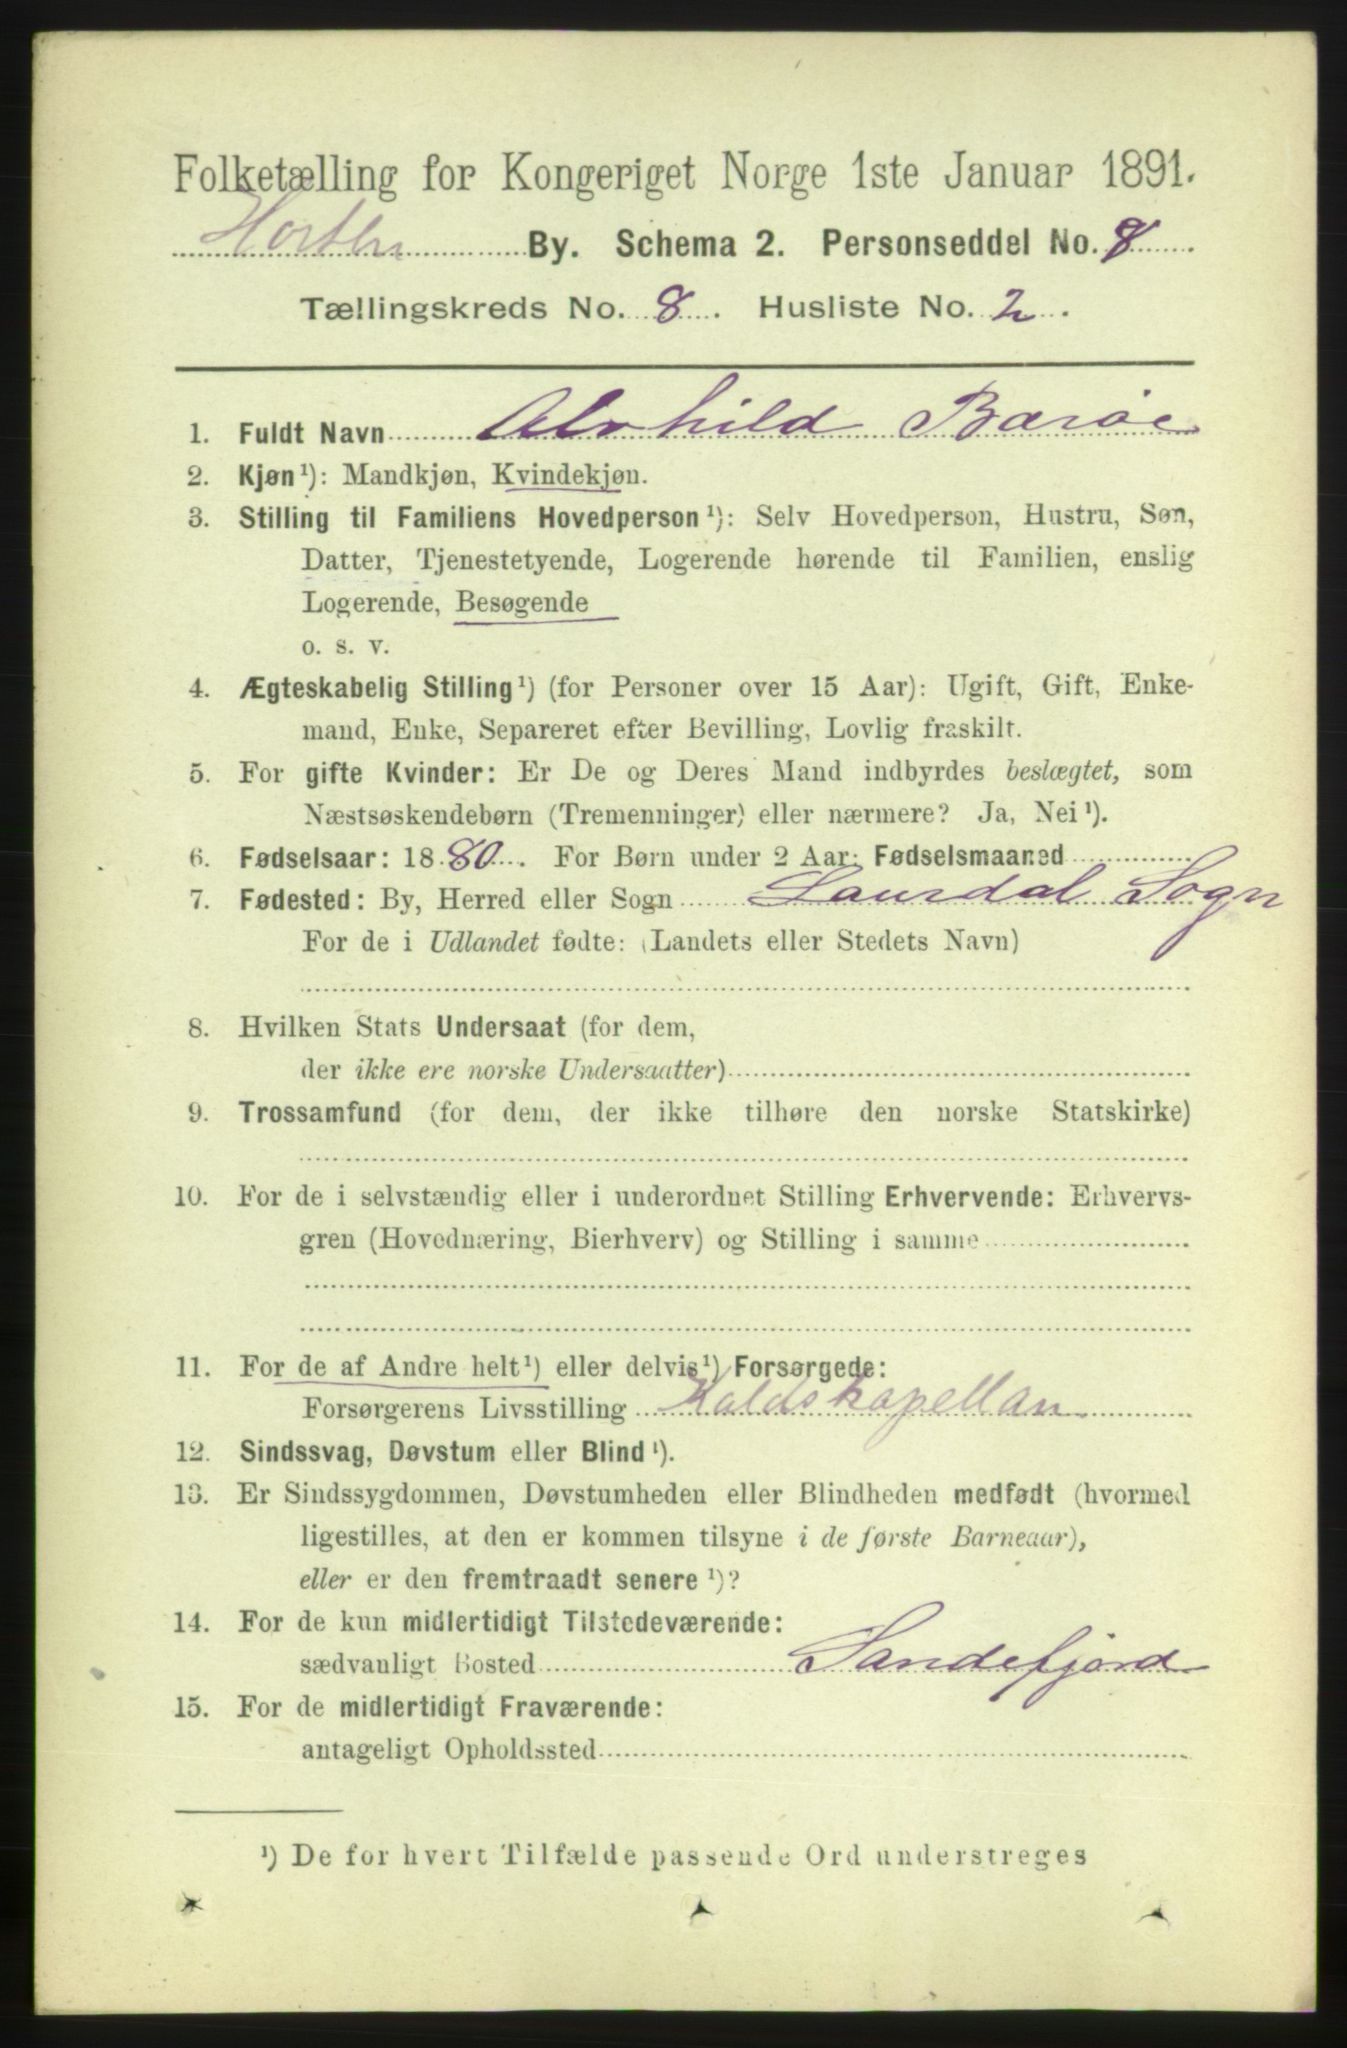 Folketælling for Kongeriget Norge 1ste Januar 1891.
Horten By. Schema 2. Personseddel No. 8
Tællingskreds No. 8. Husliste No. 2.
1. Fuldt Navn Alvhild Barøe
2. Kjøn¹): Mandkjøn, Kvindekjøn.
3. Stilling til Familiens Hovedperson¹): Selv Hovedperson, Hustru, Søn,
Datter, Tjenestetyende, Logerende hørende til Familien, enslig
Logerende, Besøgende
o. s. v.
4. Ægteskabelig Stilling¹) (for Personer over 15 Aar): Ugift, Gift, Enke-
mand, Enke, Separeret efter Bevilling, Lovlig fraskilt.
5. For gifte Kvinder: Er De og Deres Mand indbyrdes beslægtet, som
Næstsøskendebørn (Tremenninger) eller nærmere? Ja, Nei¹).
6. Fødselsaar: 1880. For Børn under 2 Aar: Fødselsmaaned
7. Fødested: By, Herred eller Sogn Laurdal Sogn
For de i Udlandet fødte: (Landets eller Stedets Navn)
8. Hvilken Stats Undersaat (for dem,
der ikke ere norske Undersaatter)
9. Trossamfund (for dem, der ikke tilhøre den norske Statskirke)
10. For de i selvstændig eller i underordnet Stilling Erhvervende: Erhvervs-
gren (Hovednæring, Bierhverv) og Stilling i samme
11. For de af Andre helt¹) eller delvis¹) Forsørgede:
Forsørgerens Livsstilling Kaldskapellan
12. Sindssvag, Døvstum eller Blind¹).
13. Er Sindssygdommen, Døvstumheden eller Blindheden medfødt (hvormed
ligestilles, at den er kommen tilsyne i de første Barneaar),
eller er den fremtraadt senere¹)?
14. For de kun midlertidigt Tilstedeværende:
sædvanligt Bosted Sandefjord
15. For de midlertidigt Fraværende:
antageligt Opholdssted
¹) De for hvert Tilfælde passende Ord understreges